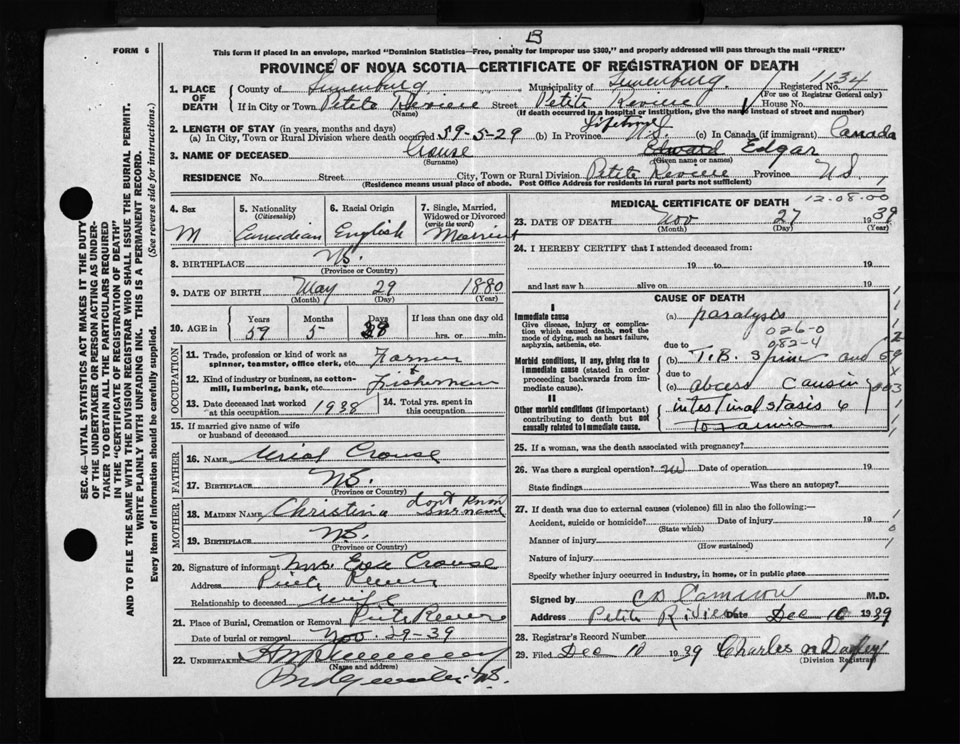 B
FORM 6
This form if placed in an envelope, marked "Dominion Statistics—Free, penalty for improper use $300," and properly addressed will pass through the mail "FREE"
PROVINCE OF NOVA SCOTIA—CERTIFICATE OF REGISTRATION OF DEATH
SEC. 46—VITAL STATISTICS ACT MAKES IT THE DUTY
OF THE UNDERTAKER OR PERSON ACTING AS UNDER-
TAKER TO OBTAIN ALL THE PARTICULARS REQUIRED
IN THE "CERTIFICATE OF REGISTRATION OF DEATH"
AND TO FILE THE SAME WITH THE DIVISION REGISTRAR WHO SHALL ISSUE THE BURIAL PERMIT.
WRITE PLAINLY WITH UNFADING INK. THIS IS A PERMANENT RECORD.
Every item of Information should be carefully supplied. (See reverse side for instructions.)
1. PLACE OF DEATH
County of Lunenburg Municipality of Lunenburg Registered No. 1134
(For use of Registrar General only)
If in City or Town Petite Reviere Street Petite Reviere House No.
(Name) (If death occurred in a hospital or institution, give the name instead of street and number)
2. LENGTH OF STAY (in years, months and days)
(a) In City, Town or Rural Division where death occurred 59-5-29 (b) In Province lifetime N.S. (c) In Canada (if immigrant) Canada
3. NAME OF DECEASED Crouse Edward Edgar
(Surname) (Given name or names)
RESIDENCE No. Street City, Town or Rural Division Petite Reviere Province N.S.
(Residence means usual place of abode. Post Office Address for residents in rural parts not sufficient)
4. Sex
M
5. Nationality
(Citizenship)
Canadian
6. Racial Origin
English
7. Single, Married,
Widowed or Divorced
(write the word)
Married
8. BIRTHPLACE N.S.
(Province or Country)
9. DATE OF BIRTH May 29 1880
(Month) (Day) (Year)
10. AGE in
Years Months Days If less than one day old
59 5 29 hrs. or min.
OCCUPATION
11. Trade, profession or kind of work as
spinner, teamster, office clerk, etc. Farmer
12. Kind of industry or business, as cotton-
mill, lumbering, bank, etc. & Fisherman
13. Date deceased last worked
at this occupation 1938
14. Total yrs. spent in
this occupation
15. If married give name of wife
or husband of deceased
FATHER
16. NAME Uriah Crouse
17. BIRTHPLACE N.S.
(Province or Country)
MOTHER
18. MAIDEN NAME Christina dont know surname
19. BIRTHPLACE N.S.
(Province or Country)
20. Signature of informant Mrs. Crouse
Address
Relationship to deceased wife
21. Place of Burial, Cremation or Removal
Date of burial or removal Nov. 29-39
22. UNDERTAKER
(Name and address)
Bridgewater N.S.
MEDICAL CERTIFICATE OF DEATH
12-08-00
23. DATE OF DEATH Nov 27 1939
(Month) (Day) (Year)
24. I HEREBY CERTIFY that I attended deceased from:
19 to 19
and last saw h alive on 19
CAUSE OF DEATH
I
Immediate cause
Give disease, injury or complica-
tion which caused death, not the
mode of dying, such as heart failure,
asphyxia, asthenia, etc.
(a) paralysis
026-0
082-4
due to
Morbid conditions, if any, giving rise to
immediate cause (stated in order
proceeding backwards from im-
mediate cause).
(b) T.B. Spine and
due to
(c) abcess causin
II
Other morbid conditions (if important)
contributing to death but not
causally related to immediate cause.
intestinal stasis &
25. If a woman, was the death associated with pregnancy?
26. Was there a surgical operation? no Date of operation 19
State findings Was there an autopsy?
27. If death was due to external causes (violence) fill in also the following:—
Accident, suicide or homicide? Date of injury 19
(State which)
Manner of injury
(How sustained)
Nature of injury
Specify whether injury occurred in industry, in home, or in public place
Signed by Cameron M.D.
Address Petite Riviere Date Dec 10 1939
28. Registrar's Record Number
29. Filed Dec 10 1939 Charles
(Division Registrar)